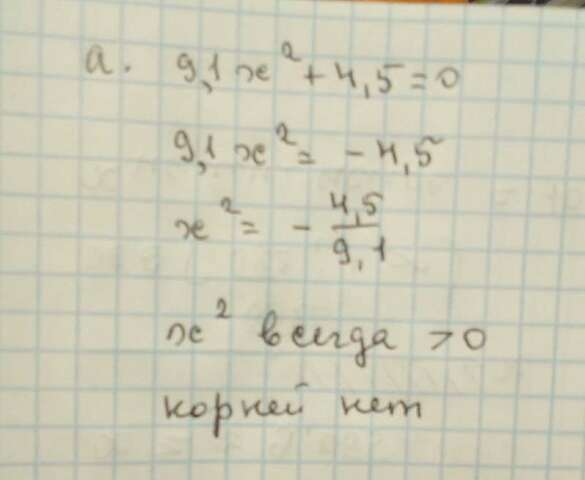 а. 9,1x² + 4,5 = 0
9,1x² = - 4,5
x² = - 4,5/9,1
x² всегда > 0
корней нет